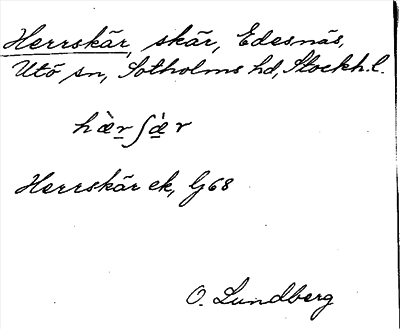 Herrskär, skär, Edesnäs,
Utö sn, Sotholms hd, Stockh. l.
hæ̀r̲ʃæ̲̀r
Herrskär ek, G68
O. Lundberg